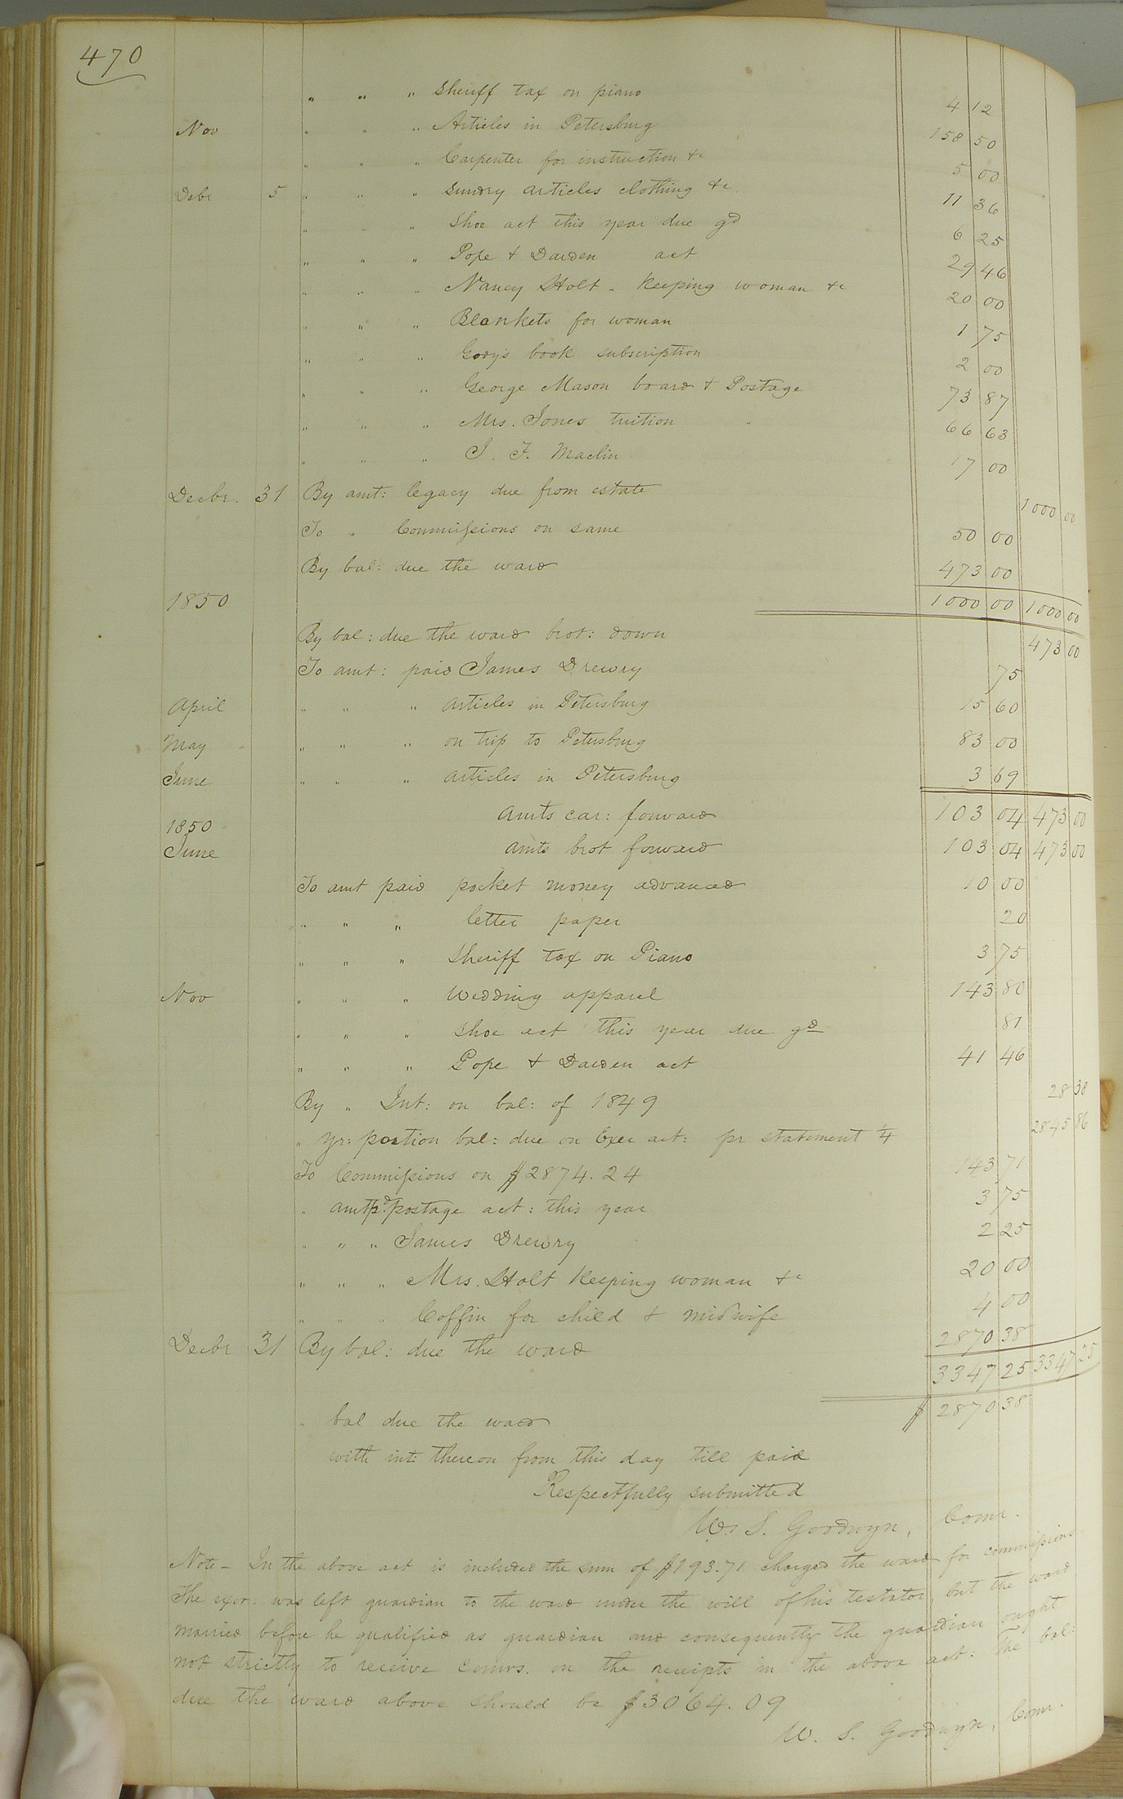 470
" " " Sheriff tax on piano 4 12
Nov " " " Articles in Petersburg 158 50
" " " Carpenter for instruction &c 5 00
Debr 5 " " " Sundry articles clothing &c 11 36
" " " Shoe act this year due gd 6 25
" " " Pope & Darden act 29 46
" " " Nancy Holt - Keeping woman &c 20 00
" " " Blankets for woman 1 75
" " " Godys book subscription 2 00
" " " George Mason board & Postage 73 87
" " " Mrs. Jones tuition 66 63
" " " J. F. Maclin 17 00
Decbr. 31 By amt: legacy due from estate 1000 00
To " Commissions on same 50 00
By bal: due the ward 473 00
1850 1000 00 1000 00
By bal: due the ward brot: down 473 00
To amt: paid James Drewry 75
April " " " articles in Petersburg 15 60
May " " " on trip to Petersburg 83 00
June " " " articles in Petersburg 3 69
Amts car: forward 103 04 473 00
1850
June Amts brot forward 103 04 473 00
To amt paid pocket money advanced 10 00
" " " letter paper 20
" " " Sheriff tax on Piano 3 75
Nov " " " Wedding apparel 143 80
" " " Shoe act this year due gd 81
" " " Pope & Darden act 41 46
By " Int: on bal: of 1849 28 38
" yr: portion bal: due on Exer act: pr statement ¼ 2845 86
To Commissions on $2874.24 143 71
" amt pd: postage act: this year 3 75
" " " James Drewry 2 25
" " " Mrs. Holt Keeping woman &c 20 00
" " " Coffin for child & midwife 4 00
Decbr 31 By bal: due the ward 2870 38
3347 25 3347 25
" bal due the ward $ 2870 38
with int: thereon from this day till paid
Respectfully submitted
W. S. Goodwyn, Comr.
Note - In the above act is included the sum of $193.71 charged the ward for commissions
The exor: was left guardian to the ward under the will of his testator, but the ward
married before he qualified as guardian and consequently the guardian ought
not strictly to receive comrs. on the receipts in the above act: The bal:
due the ward above should be $3064.09
W. S. Goodwyn, Comr.